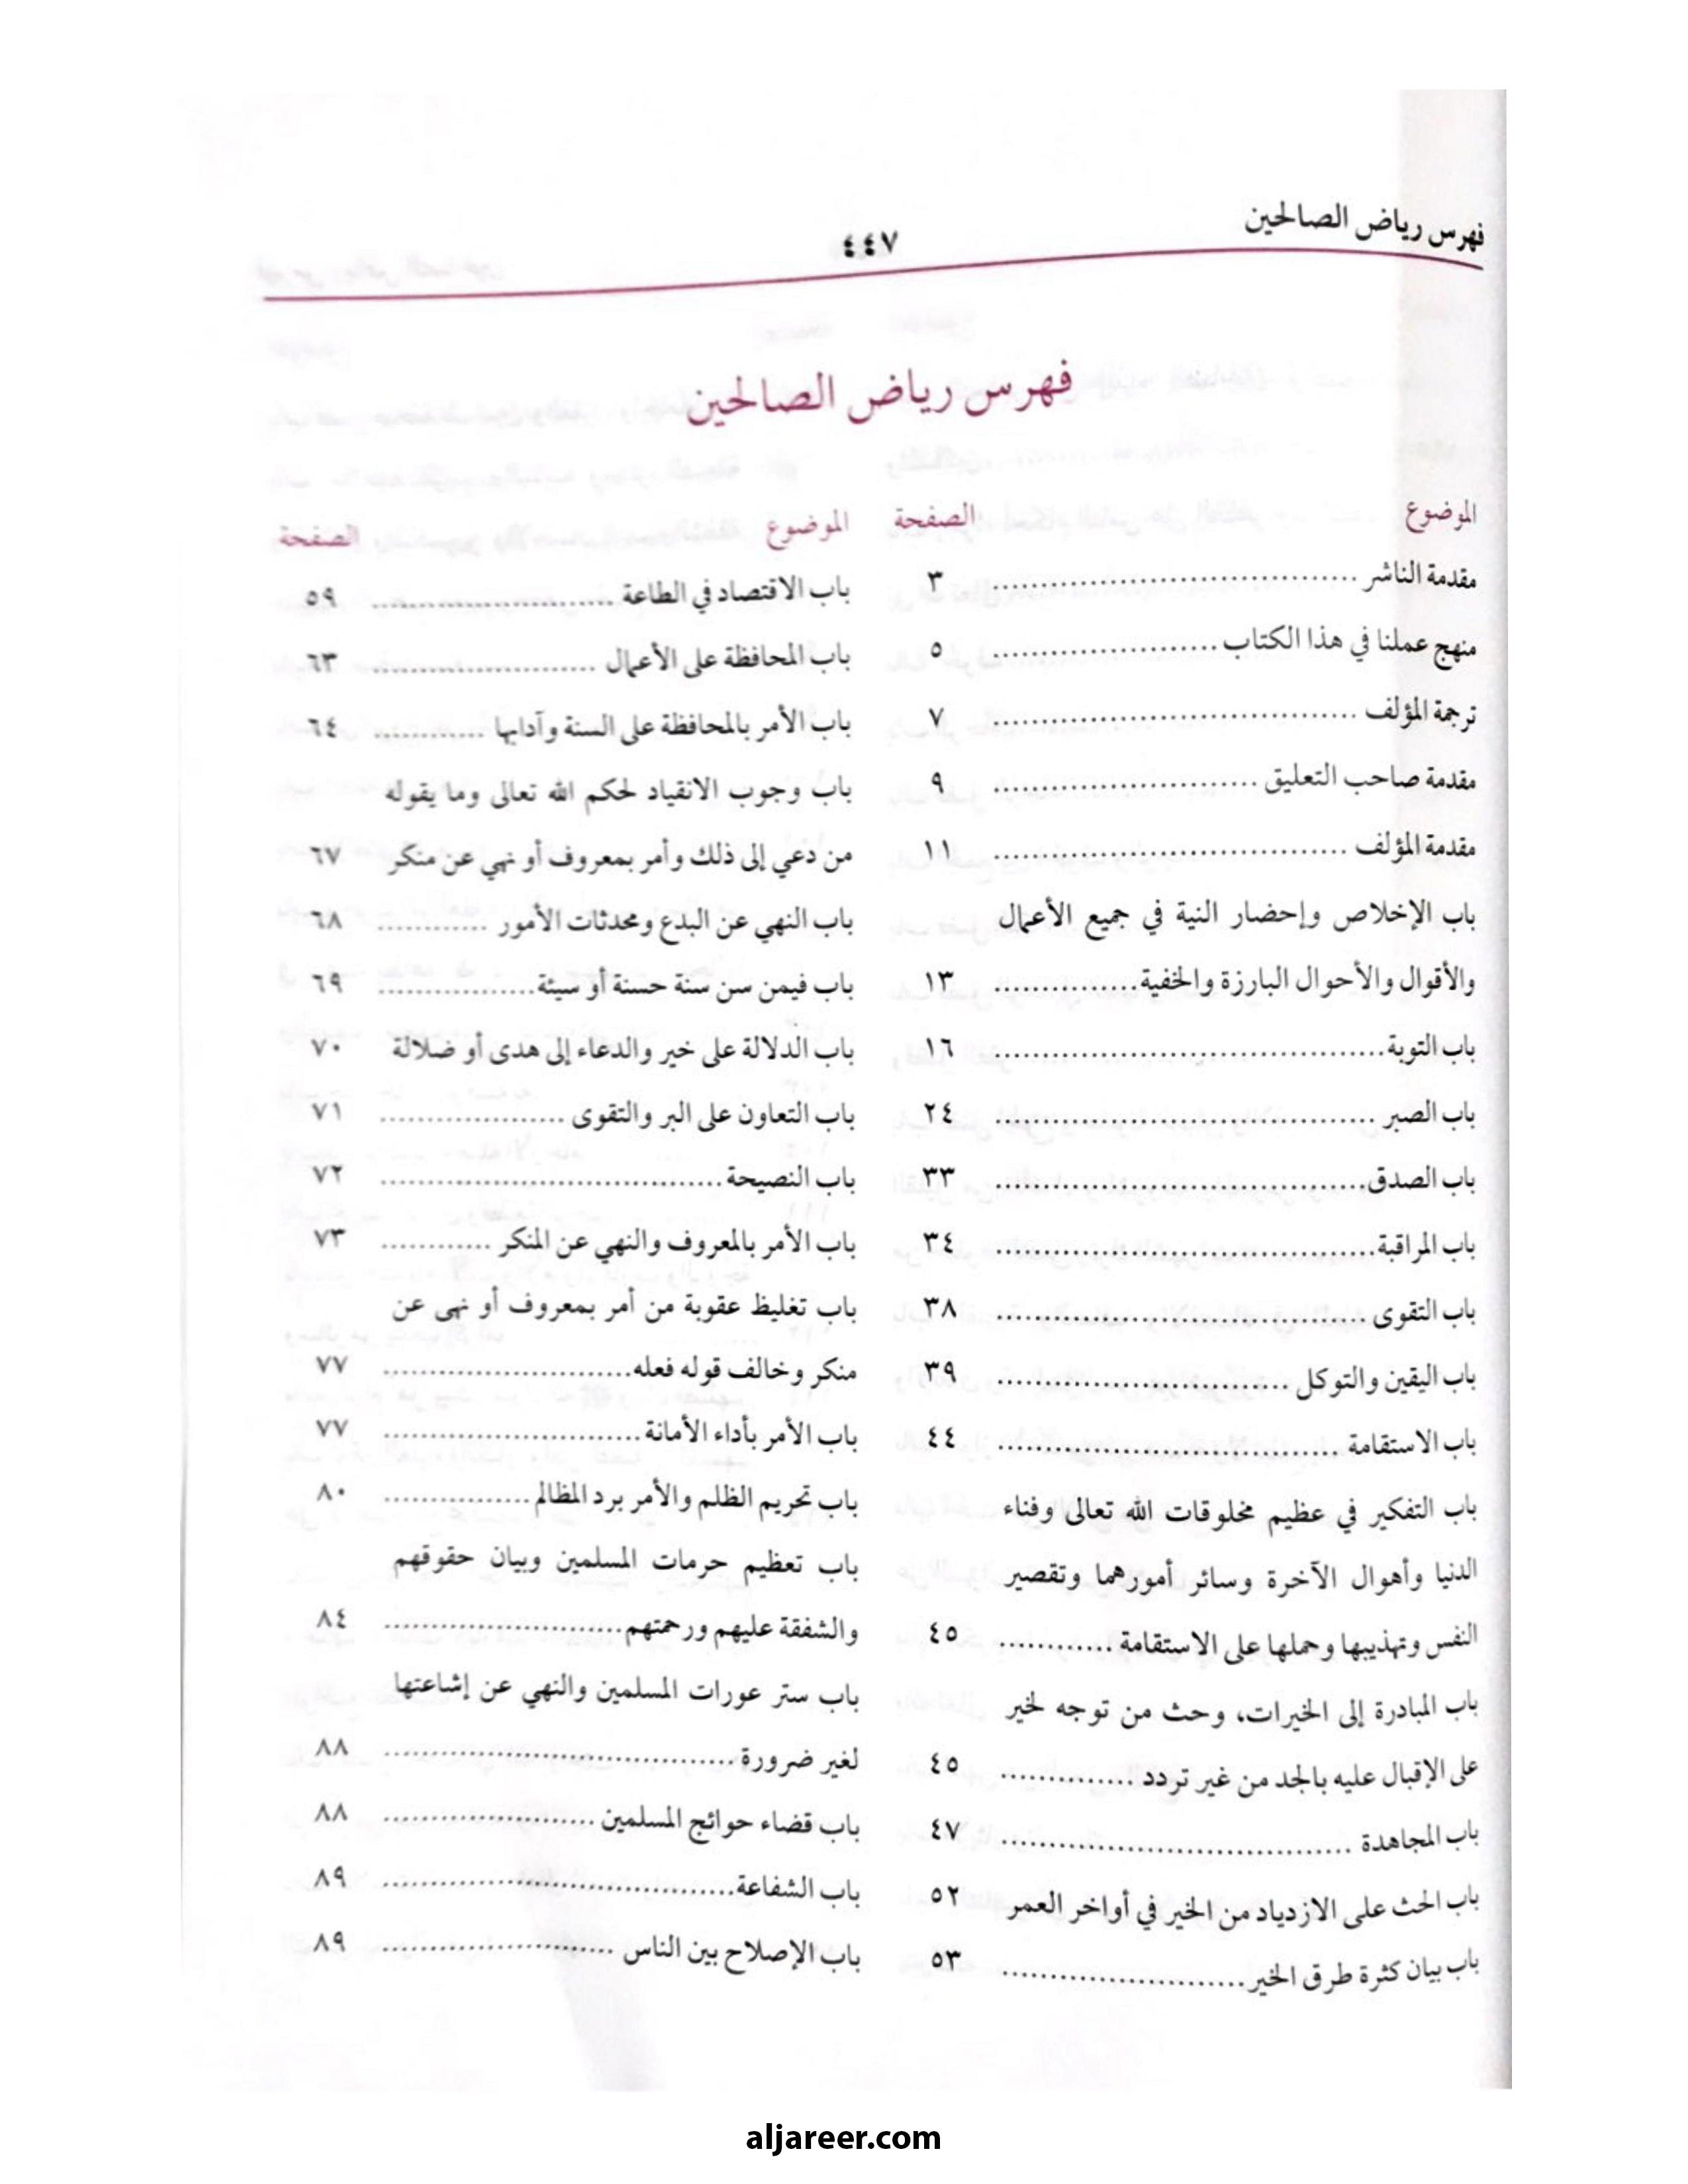 فهرس رياض الصالحين
٤٤٧
فهرس رياض الصالحين
الموضوع الصفحة
مقدمة الناشر ................................ ٣
منهج عملنا في هذا الكتاب .................... ٥
ترجمة المؤلف ................................ ٧
مقدمة صاحب التعليق ........................ ٩
مقدمة المؤلف ................................ ١١
باب الإخلاص وإحضار النية في جميع الأعمال
والأقوال والأحوال البارزة والخفية ............. ١٣
باب التوبة ................................ ١٦
باب الصبر ................................ ٢٤
باب الصدق ................................ ٣٣
باب المراقبة ................................ ٣٤
باب التقوى ................................ ٣٨
باب اليقين والتوكل ........................ ٣٩
باب الاستقامة ............................ ٤٤
باب التفكير في عظيم مخلوقات الله تعالى وفناء
الدنيا وأهوال الآخرة وسائر أمورهما وتقصير
النفس وتهذيبها وحملها على الاستقامة ........... ٤٥
باب المبادرة إلى الخيرات، وحث من توجه لخير
على الإقبال عليه بالجد من غير تردد ............. ٤٥
باب المجاهدة ................................ ٤٧
باب الحث على الازدياد من الخير في أواخر العمر ٥٢
باب بيان كثرة طرق الخير ...................... ٥٣
الموضوع الصفحة
باب الاقتصاد في الطاعة ...................... ٥٩
باب المحافظة على الأعمال .................... ٦٣
باب الأمر بالمحافظة على السنة وآدابها ............ ٦٤
باب وجوب الانقياد لحكم الله تعالى وما يقوله
من دعي إلى ذلك وأمر بمعروف أو نهي عن منكر ٦٧
باب النهي عن البدع ومحدثات الأمور ............ ٦٨
باب فيمن سن سنة حسنة أو سيئة .............. ٦٩
باب الدلالة على خير والدعاء إلى هدى أو ضلالة ٧٠
باب التعاون على البر والتقوى ................. ٧١
باب النصيحة ................................ ٧٢
باب الأمر بالمعروف والنهي عن المنكر ............ ٧٣
باب تغليظ عقوبة من أمر بمعروف أو نهى عن
منكر وخالف قوله فعله ........................ ٧٧
باب الأمر بأداء الأمانة ........................ ٧٧
باب تحريم الظلم والأمر برد المظالم .............. ٨٠
باب تعظيم حرمات المسلمين وبيان حقوقهم
والشفقة عليهم ورحمتهم ........................ ٨٤
باب ستر عورات المسلمين والنهي عن إشاعتها
لغير ضرورة ................................ ٨٨
باب قضاء حوائج المسلمين .................... ٨٨
باب الشفاعة ................................ ٨٩
باب الإصلاح بين الناس ...................... ٨٩
aljareer.com